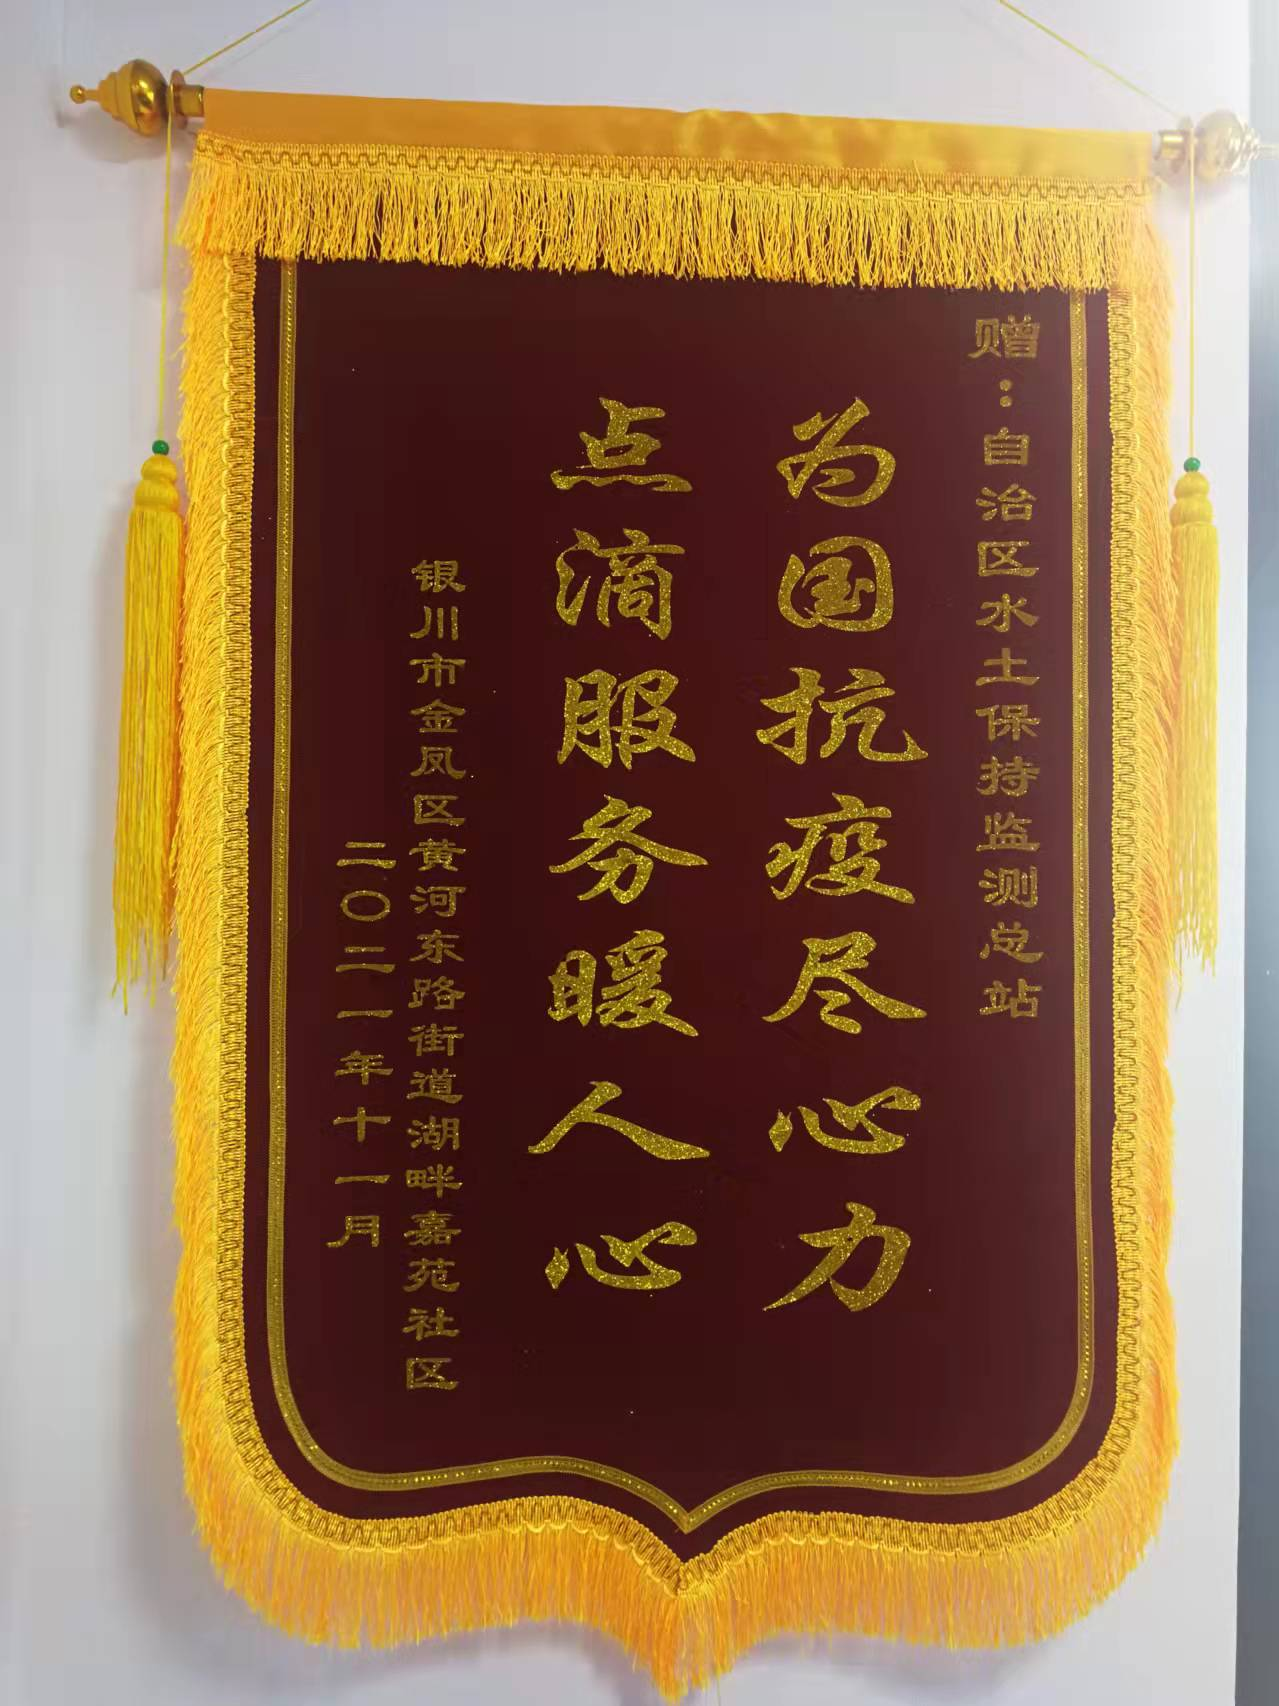 赠：自治区水土保持监测总站
为国抗疫尽心力
点滴服务暖人心
银川市金凤区黄河东路街道湖畔嘉苑社区
二〇二一年十一月